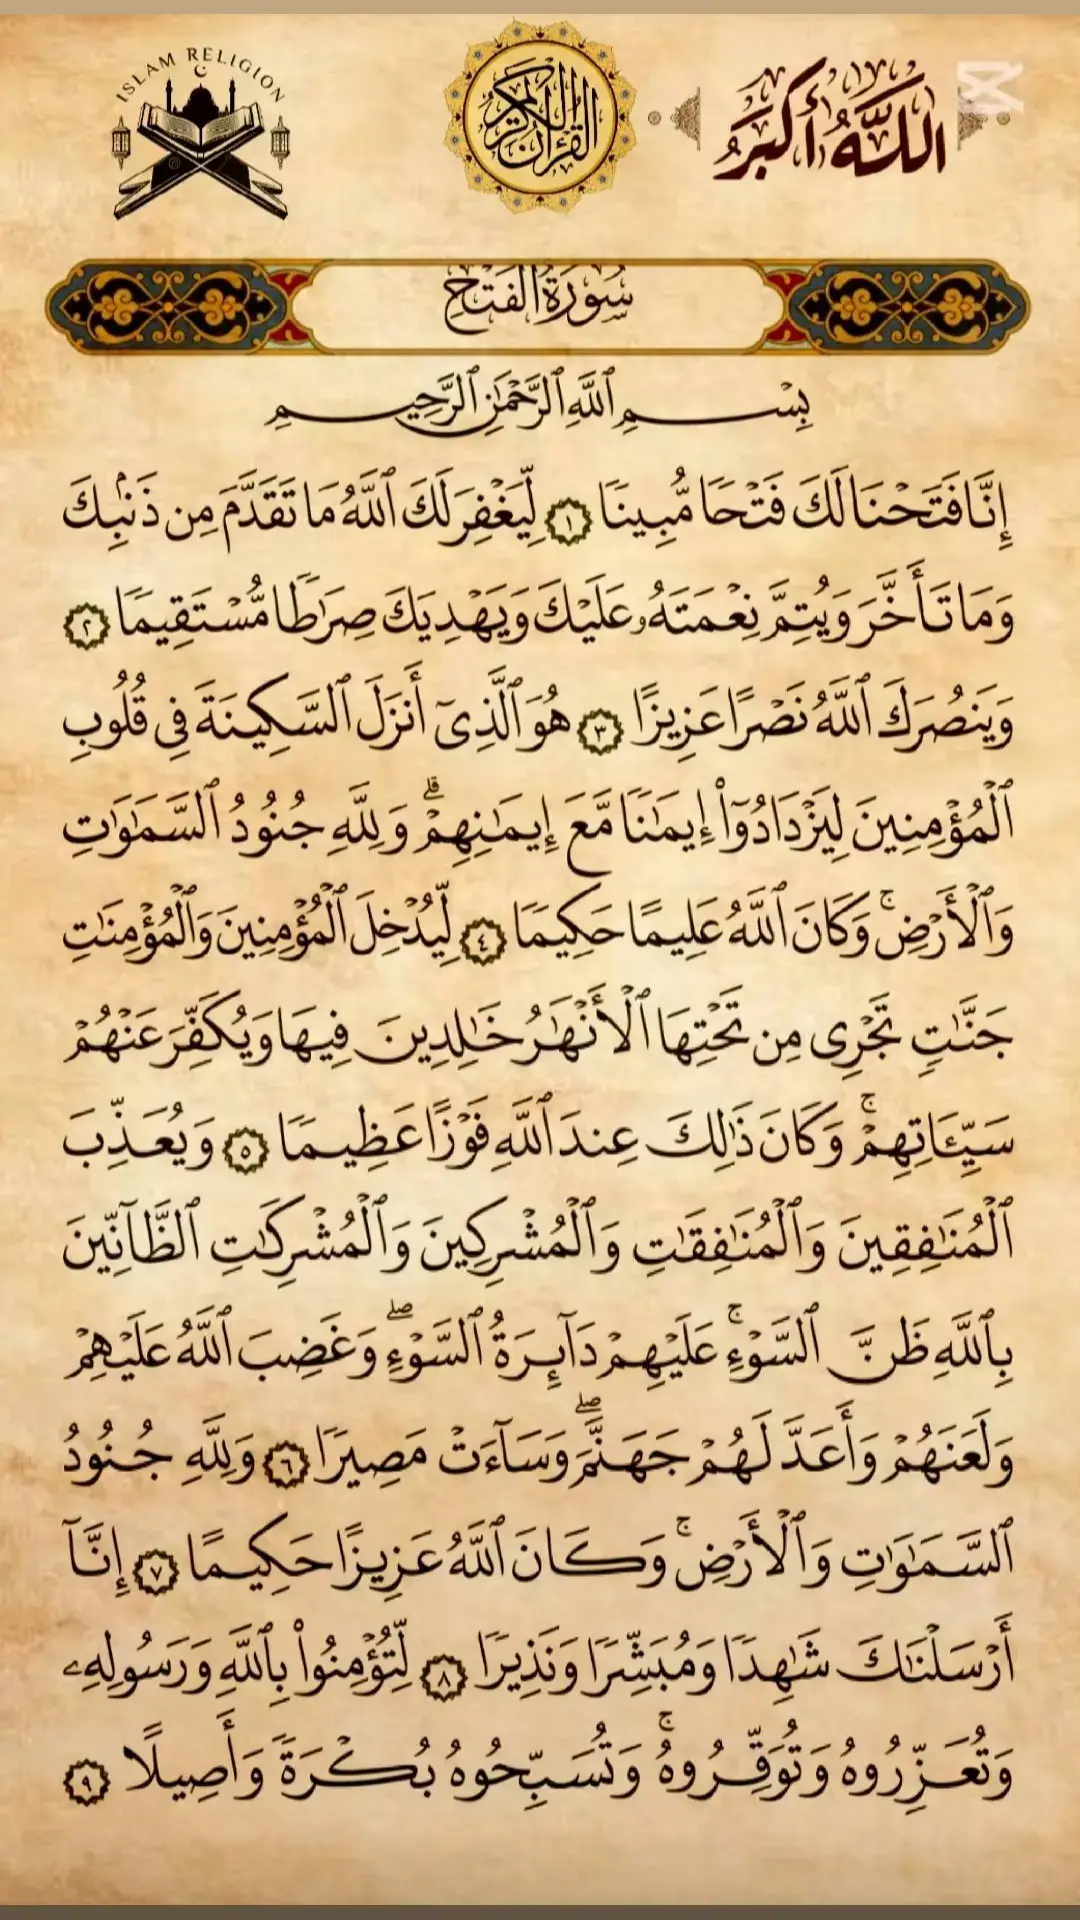 ISLAM RELIGION
القرآن الكريم
اللَّهُ أَكْبَرُ
سُورَةُ الْفَتْحِ
بِسْمِ ٱللَّهِ ٱلرَّحْمَٰنِ ٱلرَّحِيمِ
إِنَّا فَتَحْنَا لَكَ فَتْحًا مُّبِينًا ١ لِّيَغْفِرَ لَكَ ٱللَّهُ مَا تَقَدَّمَ مِن ذَنۢبِكَ
وَمَا تَأَخَّرَ وَيُتِمَّ نِعْمَتَهُۥ عَلَيْكَ وَيَهْدِيَكَ صِرَٰطًا مُّسْتَقِيمًا ٢
وَيَنصُرَكَ ٱللَّهُ نَصْرًا عَزِيزًا ٣ هُوَ ٱلَّذِىٓ أَنزَلَ ٱلسَّكِينَةَ فِى قُلُوبِ
ٱلْمُؤْمِنِينَ لِيَزْدَادُوٓا۟ إِيمَٰنًا مَّعَ إِيمَٰنِهِمْ ۗ وَلِلَّهِ جُنُودُ ٱلسَّمَٰوَٰتِ
وَٱلْأَرْضِ ۚ وَكَانَ ٱللَّهُ عَلِيمًا حَكِيمًا ٤ لِّيُدْخِلَ ٱلْمُؤْمِنِينَ وَٱلْمُؤْمِنَٰتِ
جَنَّٰتٍ تَجْرِى مِن تَحْتِهَا ٱلْأَنْهَٰرُ خَٰلِدِينَ فِيهَا وَيُكَفِّرَ عَنْهُمْ
سَيِّـَٔاتِهِمْ ۚ وَكَانَ ذَٰلِكَ عِندَ ٱللَّهِ فَوْزًا عَظِيمًا ٥ وَيُعَذِّبَ
ٱلْمُنَٰفِقِينَ وَٱلْمُنَٰفِقَٰتِ وَٱلْمُشْرِكِينَ وَٱلْمُشْرِكَٰتِ ٱلظَّآنِّينَ
بِٱللَّهِ ظَنَّ ٱلسَّوْءِ ۚ عَلَيْهِمْ دَآئِرَةُ ٱلسَّوْءِ ۖ وَغَضِبَ ٱللَّهُ عَلَيْهِمْ
وَلَعَنَهُمْ وَأَعَدَّ لَهُمْ جَهَنَّمَ ۖ وَسَآءَتْ مَصِيرًا ٦ وَلِلَّهِ جُنُودُ
ٱلسَّمَٰوَٰتِ وَٱلْأَرْضِ ۚ وَكَانَ ٱللَّهُ عَزِيزًا حَكِيمًا ٧ إِنَّآ
أَرْسَلْنَٰكَ شَٰهِدًا وَمُبَشِّرًا وَنَذِيرًا ٨ لِّتُؤْمِنُوا۟ بِٱللَّهِ وَرَسُولِهِۦ
وَتُعَزِّرُوهُ وَتُوَقِّرُوهُ ۚ وَتُسَبِّحُوهُ بُكْرَةً وَأَصِيلًا ٩